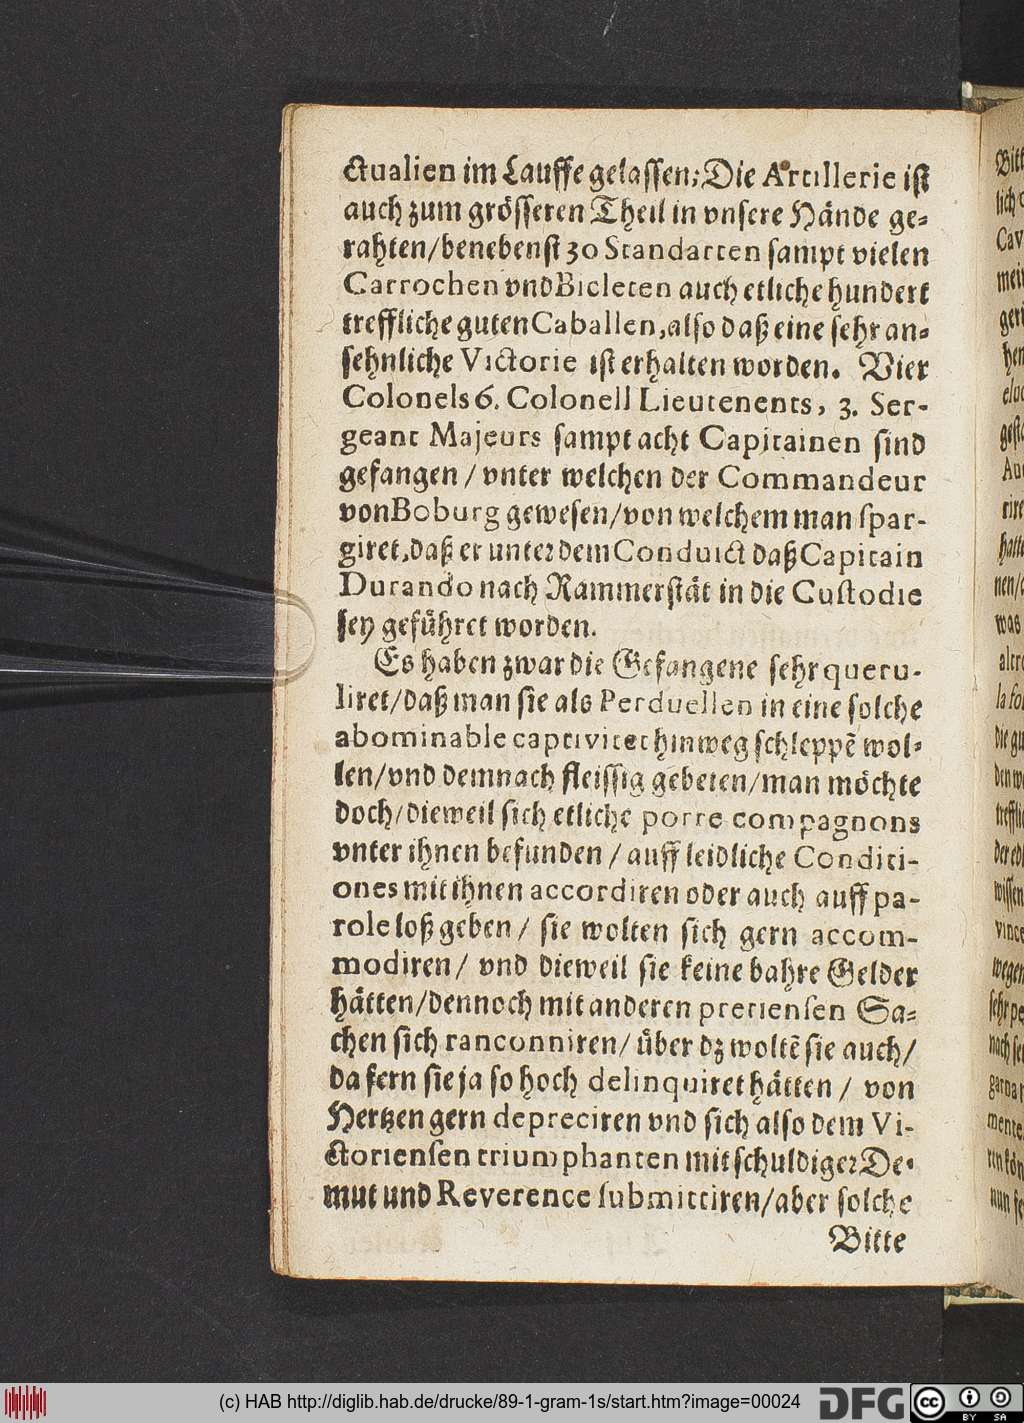 ctualien im Lauffe gelassen; Die Artillerie ist
auch zum grösseren Theil in vnsere Hände ge-
rahten/benebenst 30 Standarten sampt vielen
Carrochen vnd Bicleten auch etliche hundert
treffliche guten Caballen, also daß eine sehr an-
sehnliche Victorie ist erhalten worden. Vier
Colonels 6. Colonell Lieutenents, 3. Ser-
geant Majeurs sampt acht Capitainen sind
gefangen / vnter welchen der Commandeur
von Boburg gewesen/von welchem man spar-
giret, daß er unter dem Conduict daß Capitain
Durando nach Rammerstät in die Custodie
sey geführet worden.
Es haben zwar die Gefangene sehr queru-
liret/daß man sie als Perduellen in eine solche
abominable captivitet hinweg schleppē wol-
len/vnd demnach fleissig gebeten/man möchte
doch/dieweil sich etliche porre compagnons
vnter ihnen befunden / auff leidliche Conditi-
ones mit ihnen accordiren oder auch auff pa-
role loß geben / sie wolten sich gern accom-
modiren / vnd dieweil sie keine bahre Gelder
hätten/dennoch mit anderen pretiensen Sa-
chen sich ranconniren/ über dz woltē sie auch/
da fern sie ja so hoch delinquiret hätten / von
Hertzen gern depreciren vnd sich also dem Vi-
ctoriensen triumphanten mit schuldiger De-
mut und Reverence submittiren/aber solche
Bitte
(c) HAB http://diglib.hab.de/drucke/89-1-gram-1s/start.htm?image=00024
DFG
cc BY SA